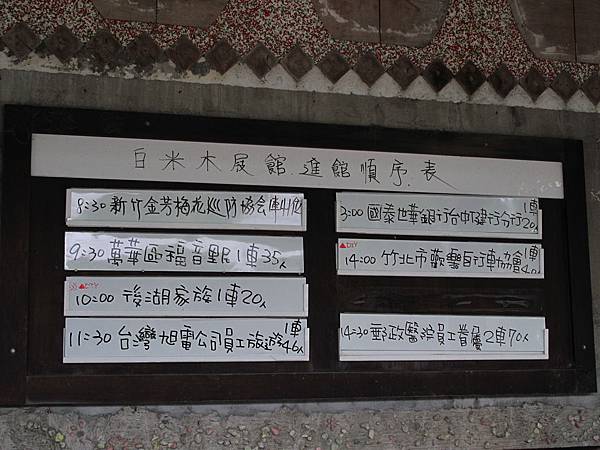 白米木屐館進館順序表
8:30 新竹金芳梅花巡防協會1車41位
9:30 萬華區福音里民1車35人
▲DIY
10:00 後湖家族1車20人
11:30 台灣旭電公司員工旅遊1車46人
3:00 國泰世華銀行台中分行1車20人
▲DIY
14:00 竹北市歡喜自行車協會1車40人
14:30 郵政醫院員工眷屬2車70人